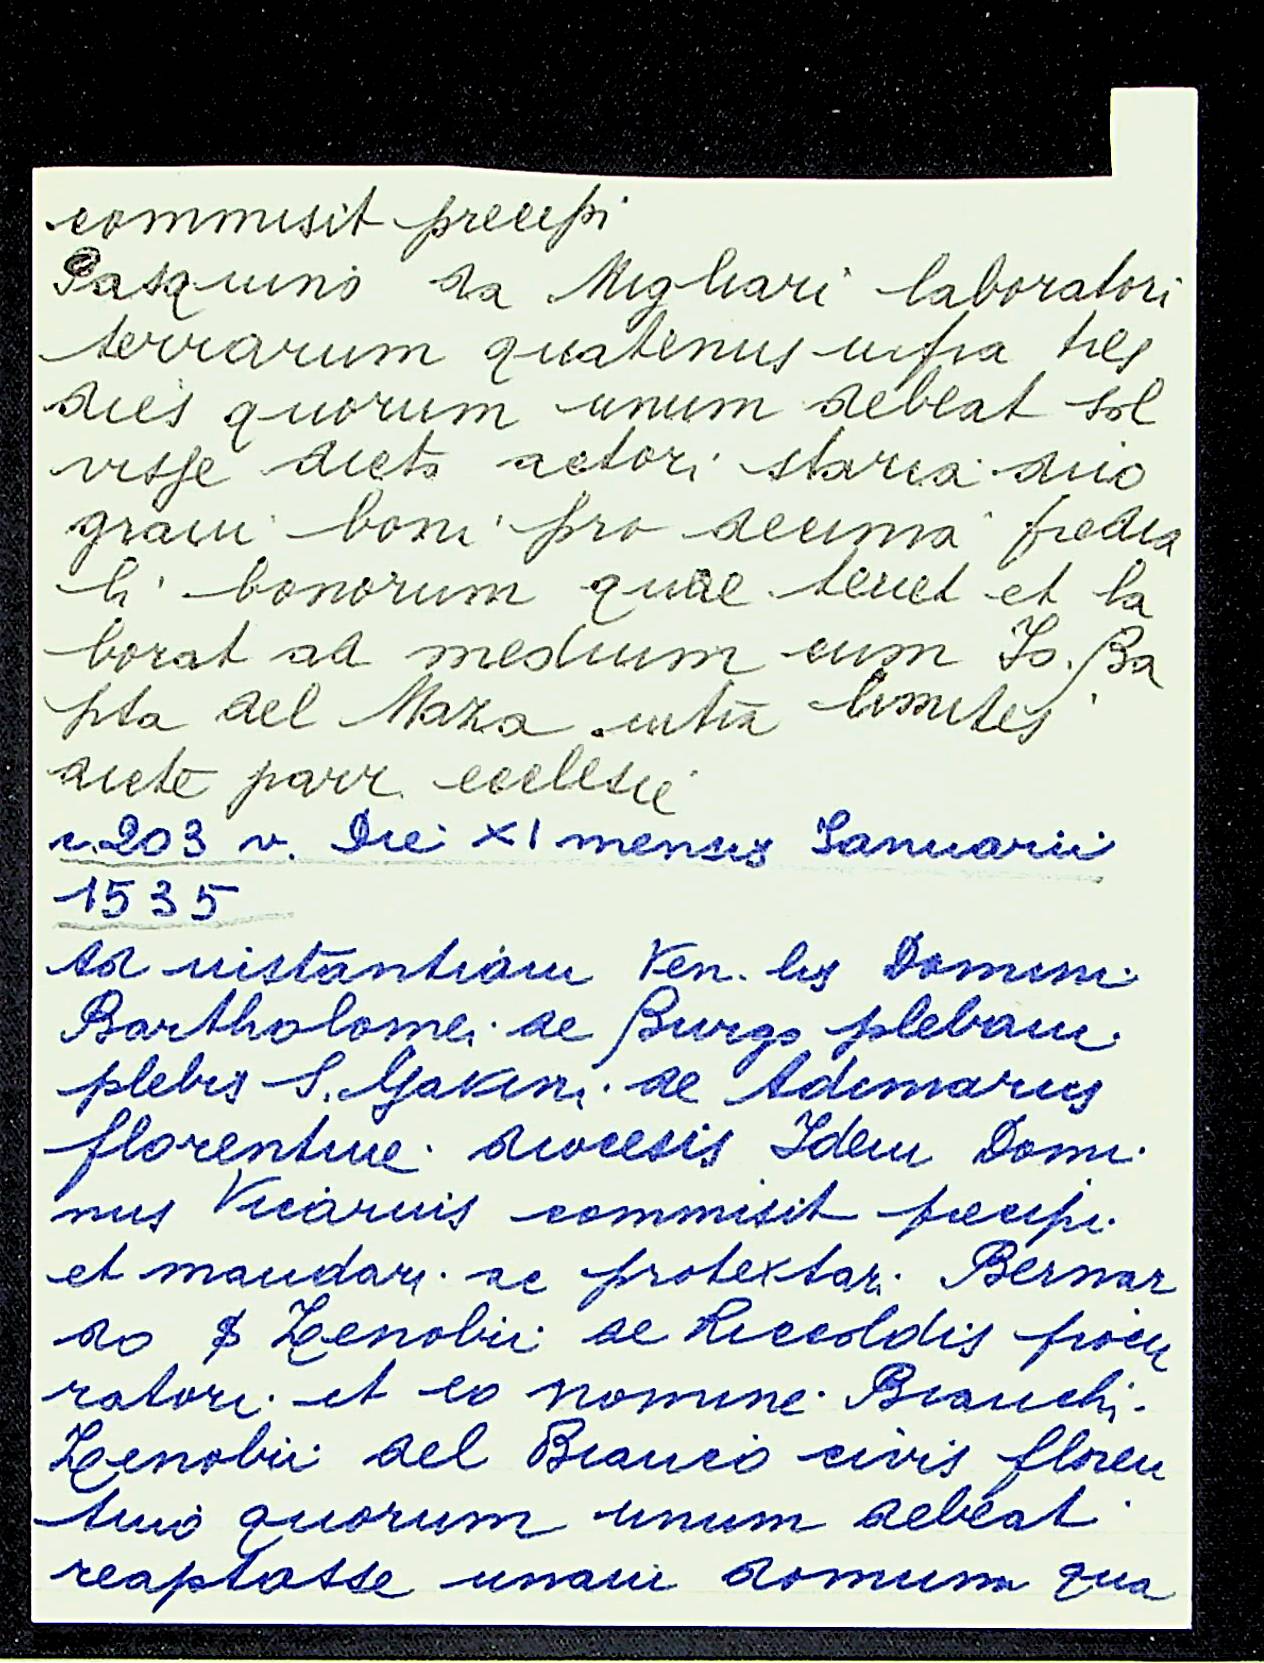 commisit precepi
Pasquino da Migliari laboratori
terrarum quatenus infra tres
dies quorum unum debeat sol
visse dicto actori staria duo
grani boni pro decima predia
li bonorum quae tenet et la
borat ad medium cum Io. Ba
pta del Maza intra limites
dicte parr. ecclesie
c. 203 v. Die XI mensis Ianuarii
1535
Ad instantiam Ven. lis Domini
Bartholomei de Burgo plebani
plebis S. Gavini de Adimaris
florentine diocesis Idem Domi
nus Vicarius commisit precipi
et mandari ac protextari Bernar
do Zenobii de Riccoldis procu
ratori et eo nomine Bianchi
Zenobii del Biancio civis floren
tino quorum unum debeat
reaptasse unam domum qua